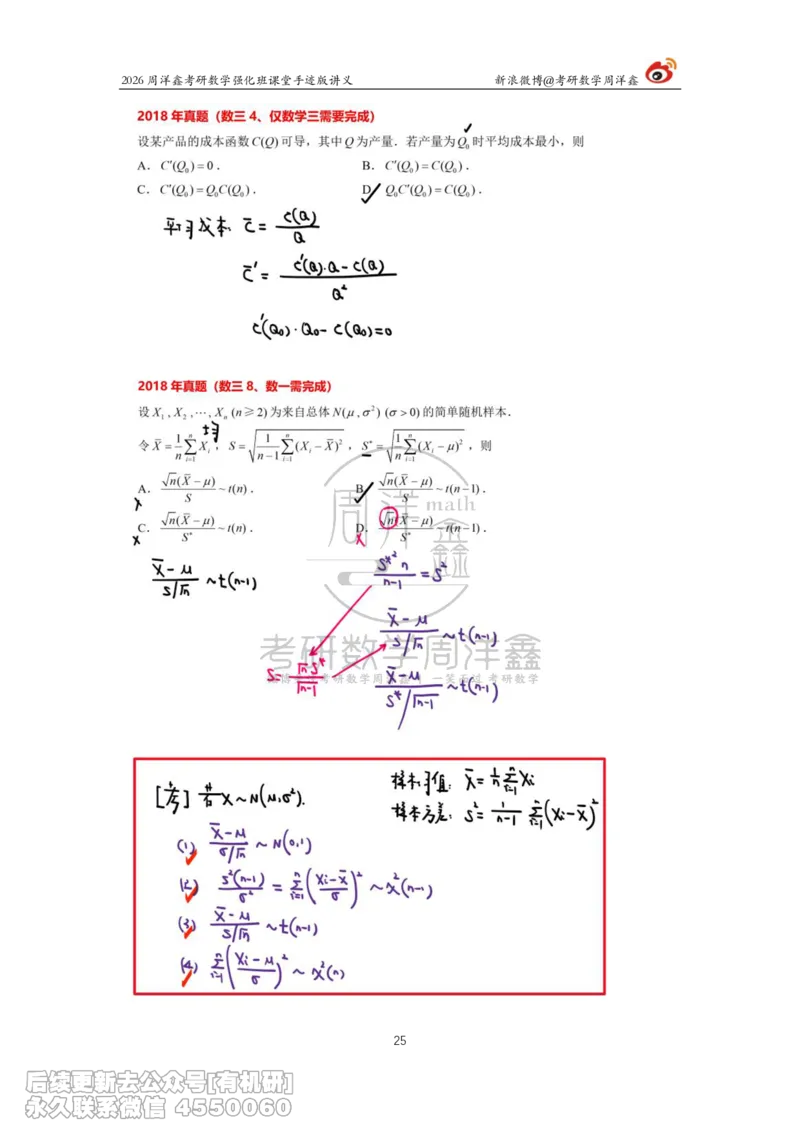 2026 周洋鑫考研数学强化班课堂手迹版讲义 新浪微博@考研数学周洋鑫
2018 年真题（数三 4、仅数学三需要完成）
设某产品的成本函数C(Q)可导，其中Q为产量．若产量为Q₀时平均成本最小，则
A．C′(Q₀)=0． B．C′(Q₀)=C(Q₀)．
C．C′(Q₀)=Q₀C(Q₀)． D．Q₀C′(Q₀)=C(Q₀)．
平均成本 C̄ = C(Q)/Q
C̄′ = (C′(Q)·Q−C(Q))/Q²
C′(Q₀)·Q₀−C(Q₀)=0
2018 年真题（数三 8、数一需完成）
设X₁,X₂,⋯,Xₙ(n≥2)为来自总体N(μ,σ²)(σ>0)的简单随机样本．
均
令X̄=1/n ∑ᵢ₌₁ⁿ Xᵢ，S=√(1/(n−1) ∑ᵢ₌₁ⁿ (Xᵢ−X̄)²)，S*=√(1/n ∑ᵢ₌₁ⁿ (Xᵢ−μ)²)，则
A．√n(X̄−μ)/S ~t(n)． B．√n(X̄−μ)/S ~t(n−1)．
C．√n(X̄−μ)/S* ~t(n)． D．√n(X̄−μ)/S* ~t(n−1)．
周洋鑫
math
(X̄−μ)/(S/√n) ~t(n-1)
S*²n/(n-1) = S²
(X̄−μ)/(S/√n) ~t(n-1)
考研数学周洋鑫
S= √n·S*/√(n-1)
(X̄−μ)/(S*/√(n-1)) ~t(n-1)
[考] 若X~N(μ,σ²).
样本均值: X̄=1/n ∑ᵢ₌₁ⁿ Xᵢ
样本方差: S²=1/(n-1) ∑ᵢ₌₁ⁿ (Xᵢ−X̄)²
(1) (X̄−μ)/(σ/√n) ~N(0,1)
(2) S²(n-1)/σ² = ∑ᵢ₌₁ⁿ ((Xᵢ−X̄)/σ)² ~χ²(n-1)
(3) (X̄−μ)/(S/√n) ~t(n-1)
(4) ∑ᵢ₌₁ⁿ ((Xᵢ−μ)/σ)² ~χ²(n)
25
后续更新去公众号[有机研]
永久联系微信 4550060